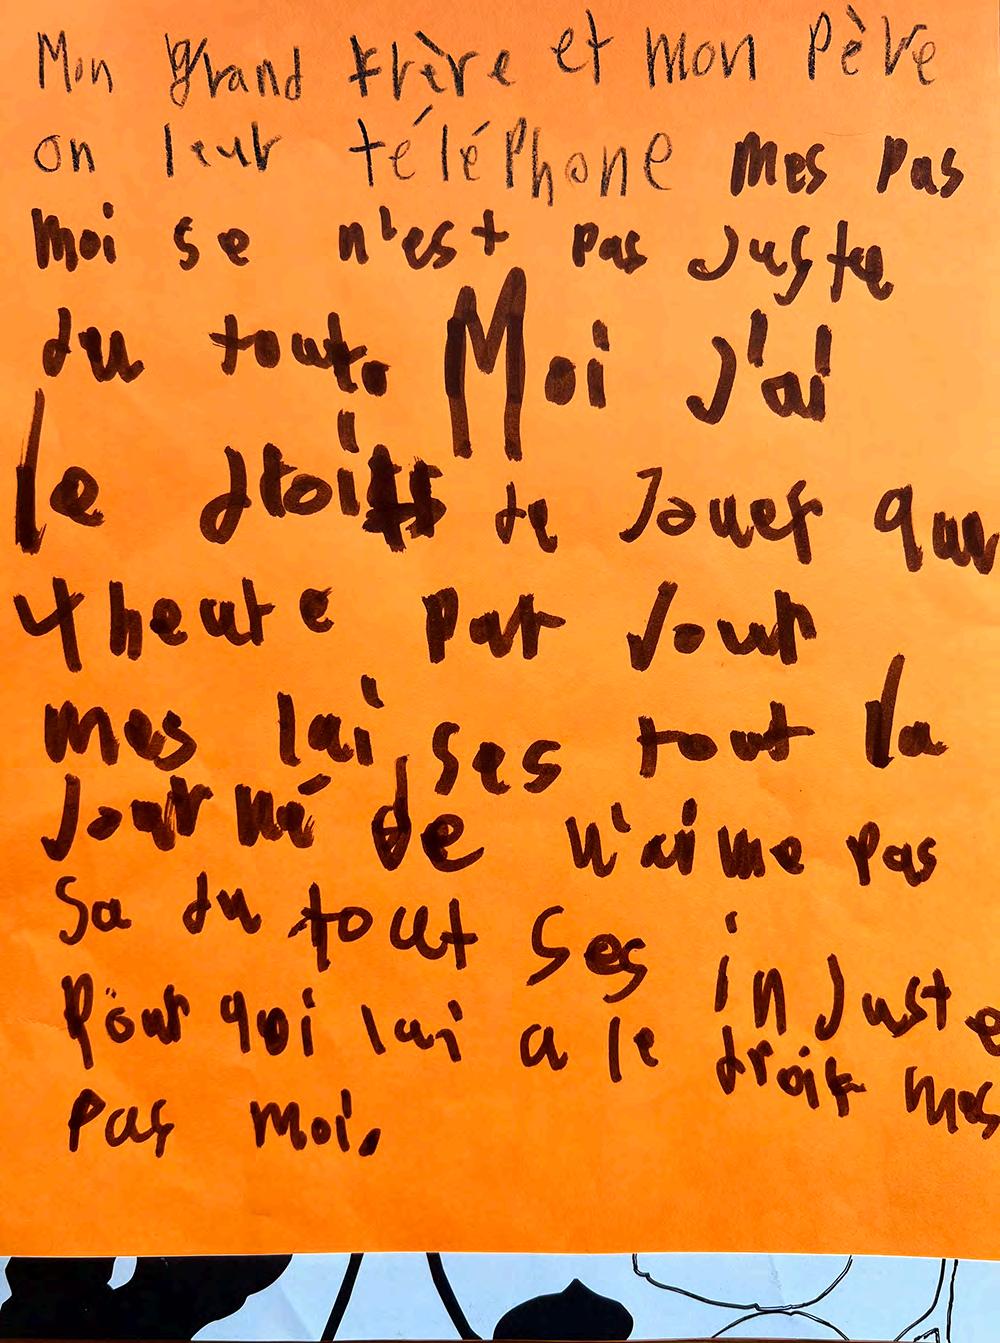 Mon grand Frère et mon Père
on leur téléphone mes pas
moi se n'est pas juste
du tout. Moi J'ai
le droits de Jouer que
4 heure par Jour
mes lui ses tout la
Journé de n'aime pas
Sa du tout Ses injuste
Pour qoi lui a le droit mes
pas moi.